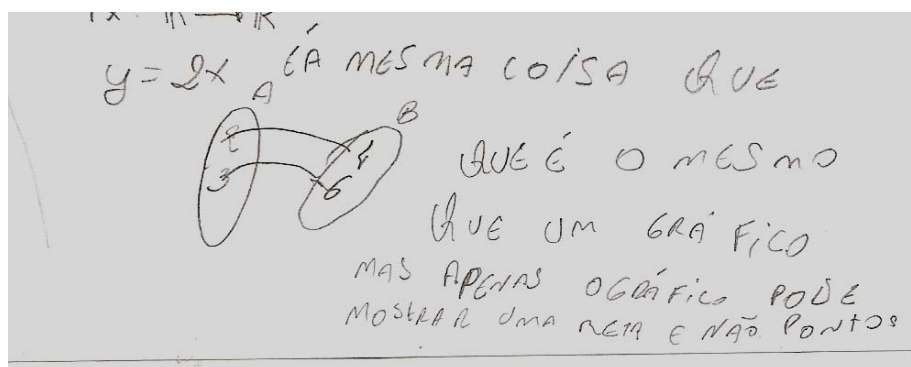 y = 2x É A MESMA COISA QUE
A B
2 4
3 6
QUE É O MESMO
QUE UM GRÁFICO
MAS APENAS O GRÁFICO PODE
MOSTRAR UMA RETA E NÃO PONTOS